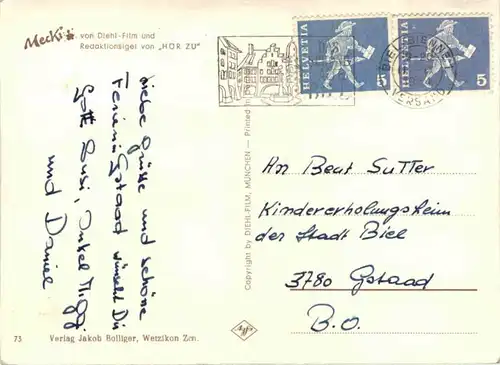 Mecki
von Diehl-Film und
Redaktionsigel von „HÖR ZU"
Liebe Grüsse und schöne
Ferien in Gstaad wünscht Dir
Gotti Susi, Onkel Miggi
und Daniel.
Copyright by DIEHL-FILM, MÜNCHEN — Printed in
HELVETIA 5
HELVETIA 5
BIEL-BIENNE
VERSAND
An Beat Sutter
Kindererholungsheim
der Stadt Biel
3780 Gstaad
B.O.
Agfa
73 Verlag Jakob Bolliger, Wetzikon Zch.